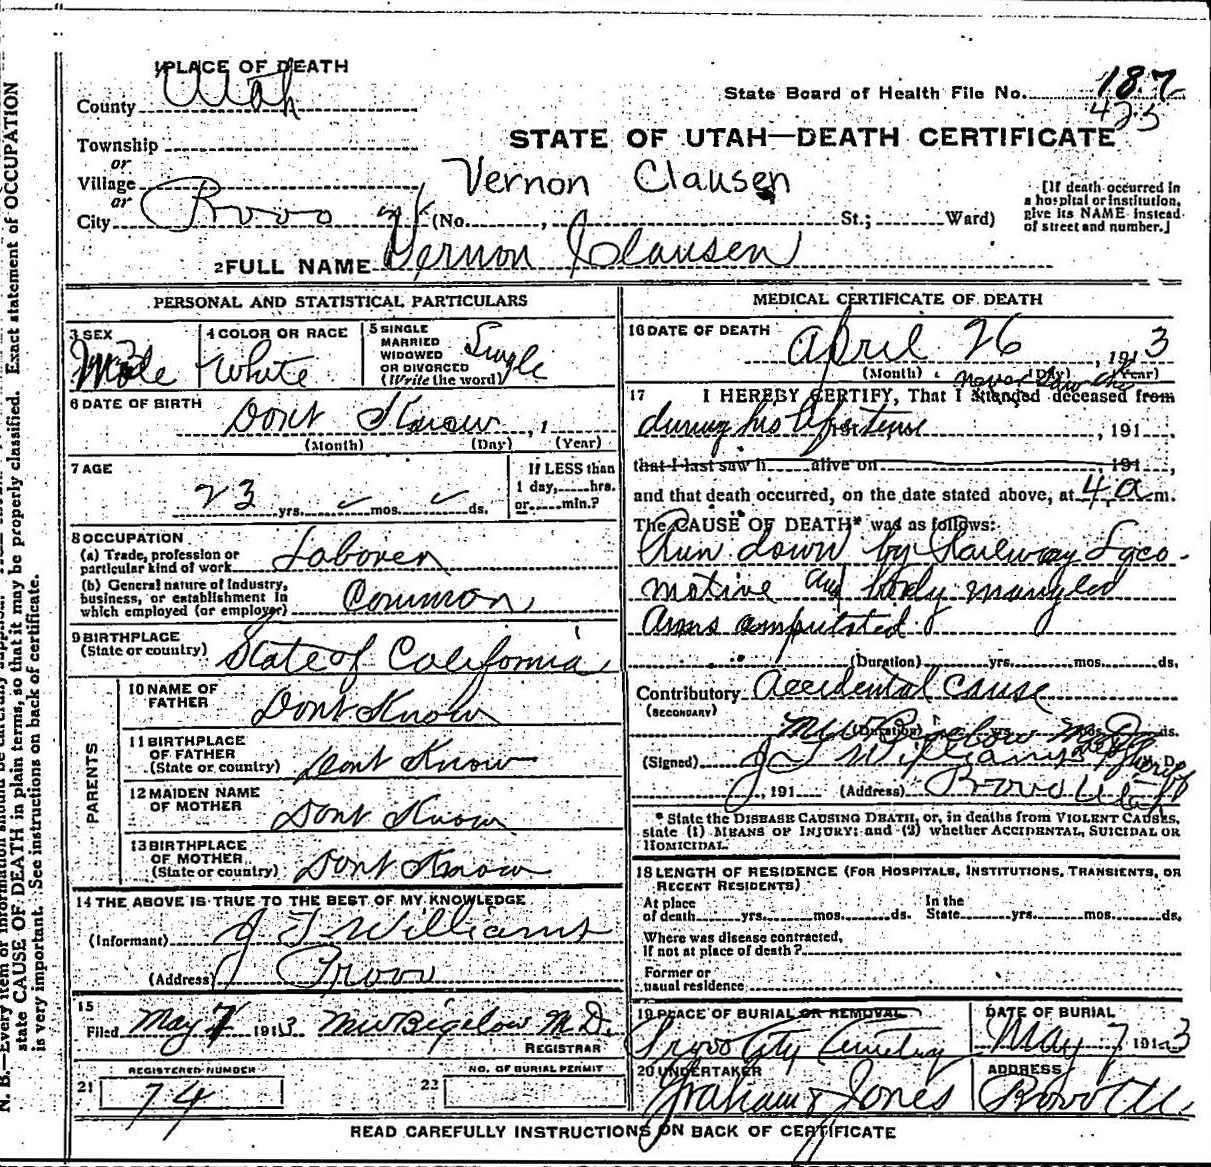 1 PLACE OF DEATH
County Utah
State Board of Health File No. 187
425
Township
STATE OF UTAH—DEATH CERTIFICATE
or
Village
Vernon Clausen
or
City Provo (No. , St.; Ward)
[If death occurred in a hospital or institution, give its NAME instead of street and number.]
2 FULL NAME Vernon Clausen
PERSONAL AND STATISTICAL PARTICULARS
3 SEX Male
4 COLOR OR RACE White
5 SINGLE MARRIED WIDOWED OR DIVORCED (Write the word) Single
6 DATE OF BIRTH Dont Know , 1
(Month) (Day) (Year)
7 AGE
23 yrs. mos. ds.
If LESS than 1 day, hrs. or min.?
8 OCCUPATION
(a) Trade, profession or particular kind of work Laborer
(b) General nature of industry, business, or establishment in which employed (or employer) Common
9 BIRTHPLACE (State or country) State of California
PARENTS
10 NAME OF FATHER Dont Know
11 BIRTHPLACE OF FATHER (State or country) Dont Know
12 MAIDEN NAME OF MOTHER Dont Know
13 BIRTHPLACE OF MOTHER (State or country) Dont Know
14 THE ABOVE IS TRUE TO THE BEST OF MY KNOWLEDGE
(Informant) J T Williams
(Address) Provo
15
Filed May 7 1913 MW Bigelow M.D.
REGISTRAR
21 REGISTERED NUMBER 74
22 NO. OF BURIAL PERMIT
MEDICAL CERTIFICATE OF DEATH
16 DATE OF DEATH April 26, 1913
(Month) (Day) (Year)
never saw the
17 I HEREBY CERTIFY, That I attended deceased from
during his life time , 191 ,
that I last saw h alive on 191 ,
and that death occurred, on the date stated above, at 4 a m.
The CAUSE OF DEATH* was as follows:
Run down by Railway Loco-
motive and body mangled
Arms amputated.
(Duration) yrs. mos. ds.
Contributory Accidental Cause
(SECONDARY)
MW Bigelow M D
(Duration) yrs. mos. ds.
(Signed) J T Williams M. D.
, 191 (Address) Provo Utah
* State the DISEASE CAUSING DEATH, or, in deaths from VIOLENT CAUSES,
state (1) MEANS OF INJURY; and (2) whether ACCIDENTAL, SUICIDAL OR
HOMICIDAL.
18 LENGTH OF RESIDENCE (FOR HOSPITALS, INSTITUTIONS, TRANSIENTS, OR
RECENT RESIDENTS)
At place of death yrs. mos. ds. In the State yrs. mos. ds.
Where was disease contracted,
if not at place of death?
Former or
usual residence
19 PLACE OF BURIAL OR REMOVAL
Provo City Cemetery
DATE OF BURIAL
May 7 1913
20 UNDERTAKER
Graham & Jones
ADDRESS
Provo Ut.
READ CAREFULLY INSTRUCTIONS ON BACK OF CERTIFICATE
N. B.—Every item of information should be carefully supplied.
state CAUSE OF DEATH in plain terms, so that it may be properly classified. Exact statement of OCCUPATION
is very important. See instructions on back of certificate.